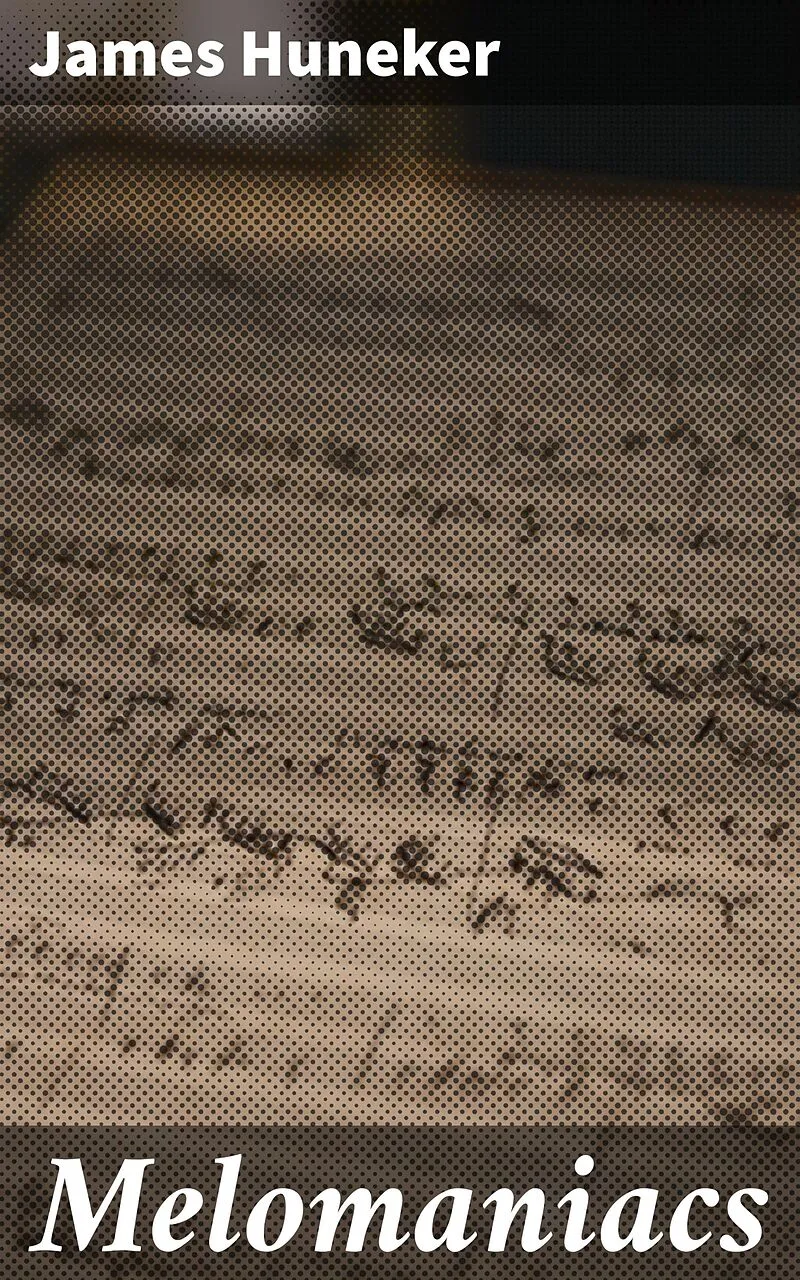 James Huneker
Melomaniacs